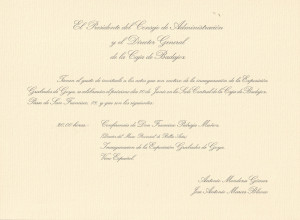 El Presidente del Consejo de Administración
y el Director General
de la Caja de Badajoz
Tienen el gusto de invitarle a los actos que con motivo de la inauguración de la Exposición
Grabados de Goya, se celebrarán el próximo día 20 de Junio en la Sede Central de la Caja de Badajoz,
Paseo de San Francisco, 18, y que son los siguientes:
20,00 horas: Conferencia de Don Francisco
Director del Museo Provincial de Bellas Artes
Inauguración de la Exposición Grabados de Goya
Vino Español
Antonio
José Antonio Marcos Blanco